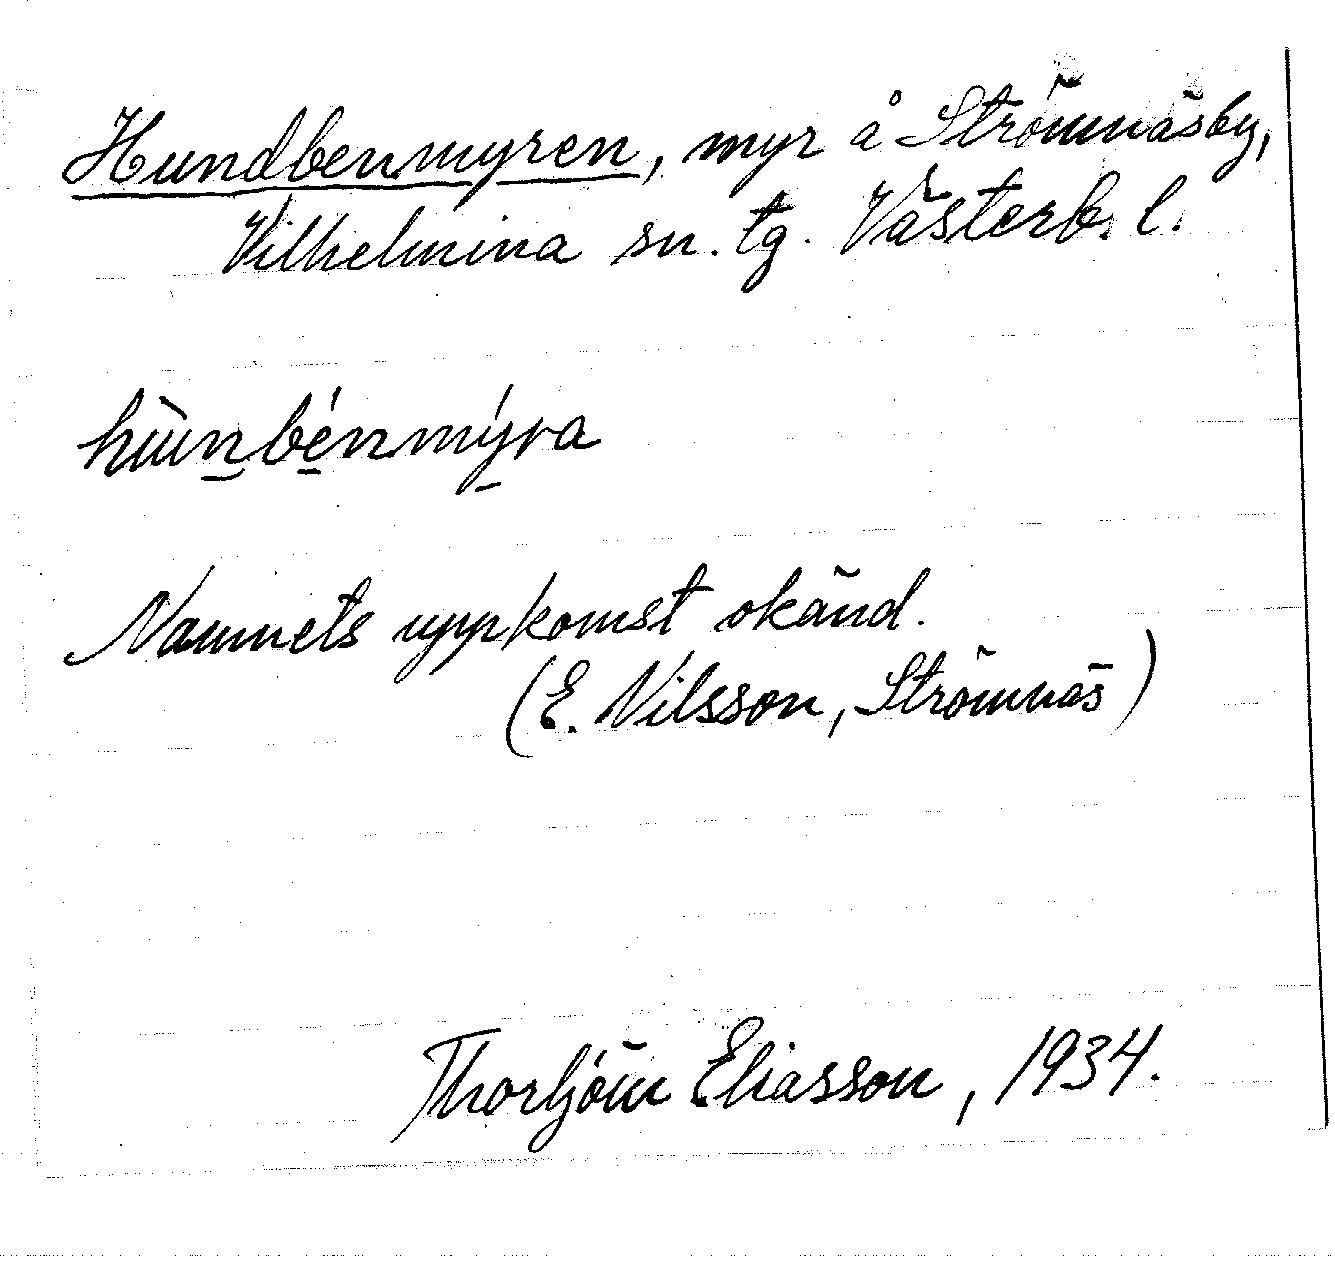 Hundbenmyren, myr å Strömnäsby,
Vilhelmina sn. tg. Västerb. l.
hùn̲bé̲nmý̲ra
Namnets uppkomst okänd.
(E. Nilsson, Strömnäs)
Eliasson, 1934.